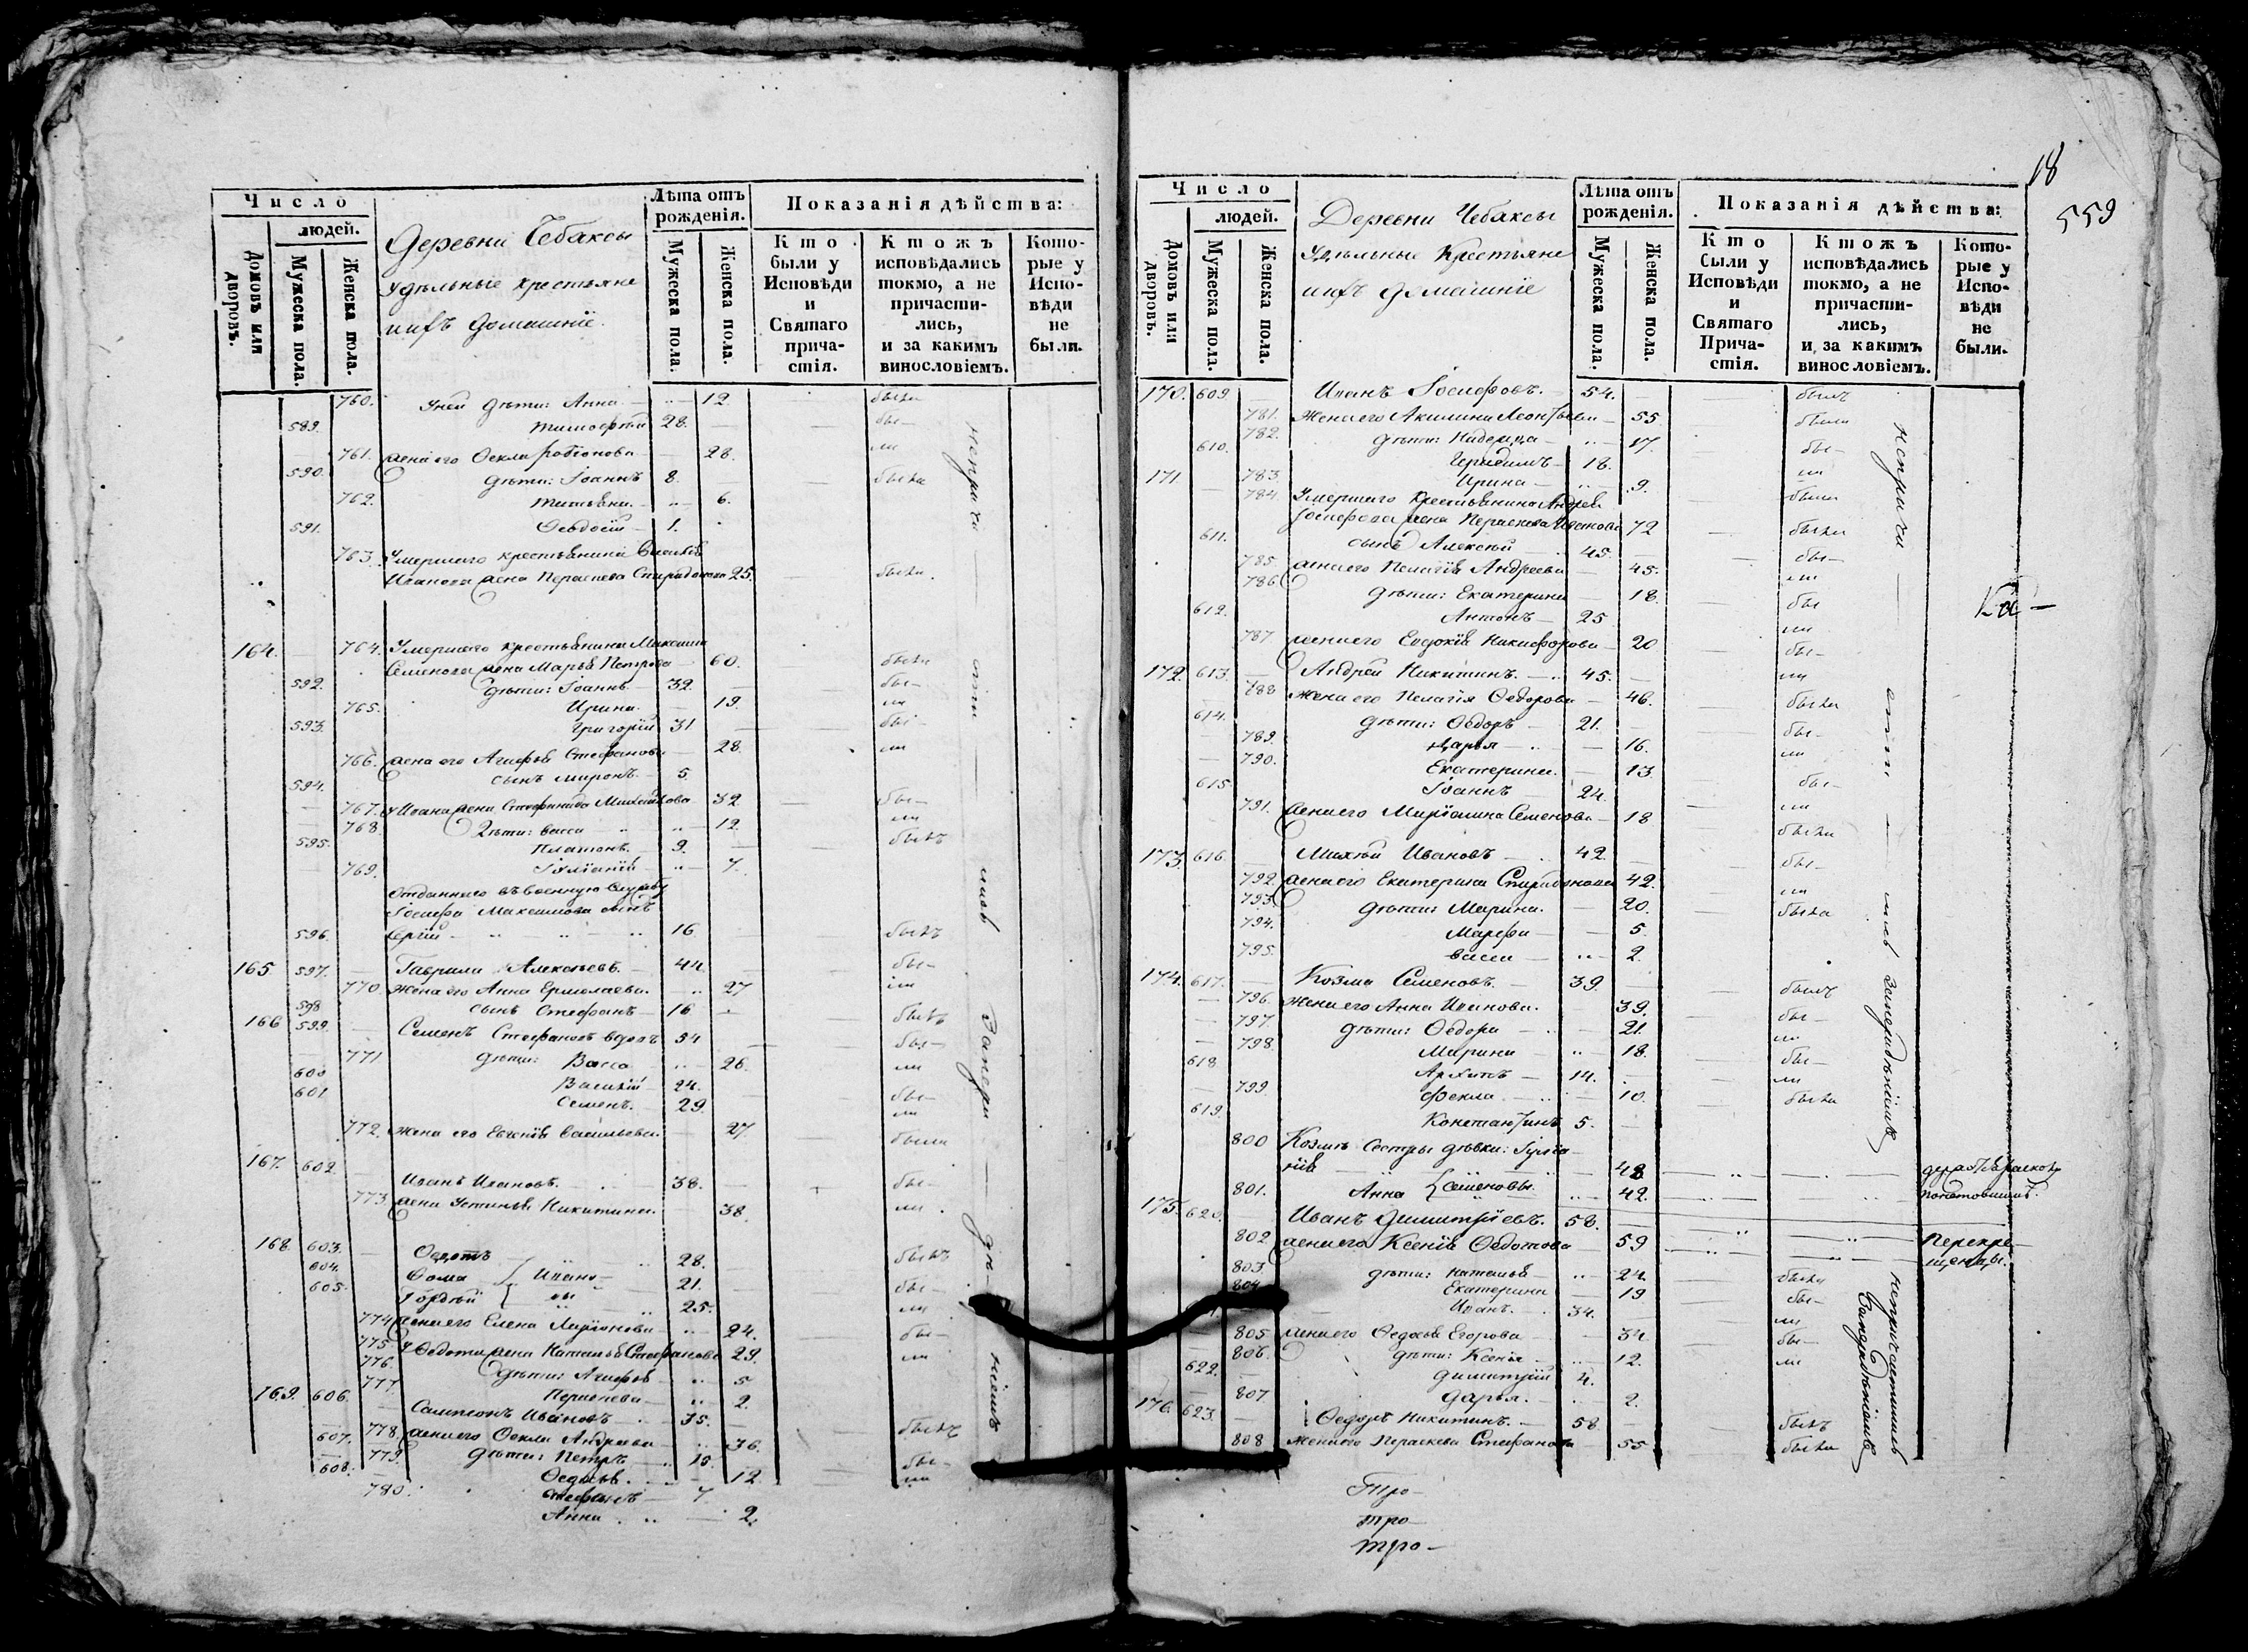 Число
людей.
Домовъ или дворовъ.
Мужеска пола.
Женска пола.
Деревни Чебаксы
удѣльные крестьяне
и ихъ домашніе.
Лѣта отъ рожденія.
Мужеска пола.
Женска пола.
Показанія дѣйства:
Кто были у Исповѣди и Святаго причастія.
Ктожъ исповѣдались токмо, а не причастились, и за какимъ винословіемъ.
Которые у Исповѣди не были.
760. У ней дѣти: Анна 12. была
589. Тимофей 28. бы-
761. жена его Фекла Родіонова 28. ли
590. дѣти: Іоаннъ 8. была
762. Татьяна 6.
591. Ѳеодосій 1.
763. Умершаго крестьянина Василья
Иванова жена Параскева Спиридонова 25. была.
164. 764. Умершаго крестьянина Максима
Семенова жена Марья Петрова 60. была
592. дѣти: Іоаннъ 32. бы-
765. Ирина 19. ли
593. Григорій 31 бы-
766. жена его Агафья Стефанова 28. ли
594. сынъ Миронъ 5
767. у Ивана жена Стефанида Михайлова 32 бы-
768. дѣти: Васса 12. ли
595. Платонъ 9. былъ
769. Іуліанія 7.
Отданнаго въ военную службу
Іосифа Максимова сынъ
596. Сергій 16 былъ
165 597. Гаврила Алексѣевъ. 44. бы-
770. жена его Анна Ермолаева. 27 ли
598 сынъ Стефанъ 16 былъ
166 599. Семенъ Стефановъ вдовъ 54 бы-
771 дѣти: Васса 26. ли
600 Василій 24. бы-
601 Семенъ. 29. ли
772. жена его Евгенія Васильева. 27 была
167. 602. Иванъ Ивановъ. 38. бы-
773. жена Устинья Никитина. 38. ли
168. 603. Ѳедотъ 28. былъ
604. Ѳома Ивано- 21. бы-
605. Гордѣй вы 25. ли
774 жена его Елена Ларіонова 24. бы-
775. у Ѳедота жена Наталья Стефанова 29. ли
776. дѣти: Агафья 5
777. Параскева 2.
169. 606. Сампсонъ Ивановъ 35. былъ
778. жена его Фекла Андреева 36. бы-
607. дѣти: Петръ 15. ли
779. Ѳедосья 12
608. Стефанъ 7
780. Анна 2.
непричастились за нерадѣніемъ
18
559
Число
людей.
Домовъ или дворовъ.
Мужеска пола.
Женска пола.
Деревни Чебаксы
Удѣльные Крестьяне
и ихъ домашніе
Лѣта отъ рожденія.
Мужеска пола.
Женска пола.
Показанія дѣйства:
Кто были у Исповѣди и Святаго Причастія.
Ктожъ исповѣдались токмо, а не причастились, и за какимъ винословіемъ.
Которые у Исповѣди не были.
170. 609 Иванъ Іосифовъ. 54. былъ
781. жена его Акилина Леонтьева 55 была
782. дѣти: Надежда 17. бы-
610. 18. ли
783. Ирина 9. была
171. 784. Умершаго крестьянина Андрея
Іосифова жена Параскева Иванова 72 была
611. сынъ Алексѣй 45. бы-
785. жена его Пелагія Андреева 45. ли
786. дѣти: Екатерина 18. бы
612. Антонъ 25 ли
787. жена его Евдокія Никифорова 20 бы-
172. 613. Андрей Никитинъ. 45. ли
788 жена его Пелагія Ѳедорова 46. была
614. дѣти: Ѳедоръ 21. бы-
789. Дарья 16. ли
790. Екатерина. 13.
615. Іоаннъ 24. бы-
791. жена его Маріамна Семенова 18 ли
173. 616. Михей Ивановъ 42. бы-
792. жена его Екатерина Спиридонова 42. ли
793. дѣти: Марина. 20. была
794. Марфа 5.
795. Васса 2.
174. 617. Козма Семеновъ. 39. былъ
796. жена его Анна Иванова. 39. бы-
797 дѣти: Ѳедора 21. ли
798. Марина 18. бы-
618 Архипъ 14. ли
799. Фекла 10. была
619. Константинъ 5.
800 Козмы сестры дѣвки: Іуліа-
нія 48
801. Анна Семеновы. 42.
175. 620. Иванъ Димитріевъ. 58.
802 жена его Ксенія Ѳедотова 59 Перекре-
щенцы.
803. дѣти: Наталья 24. была
804. Екатерина 19 бы-
Иванъ. 34. ли
805 жена его Ѳедосья Егорова 34. бы-
806. дѣти: Ксенія 12. ли
622. Димитрій 4.
807 Дарья. 2.
176. 623. Ѳедоръ Никитинъ. 58 былъ
808 жена его Параскева Стефанова 55 была
непричастились за нерадѣніемъ
непричастились
за нерадѣніемъ
Ка-
Тро-
тро-
тро-